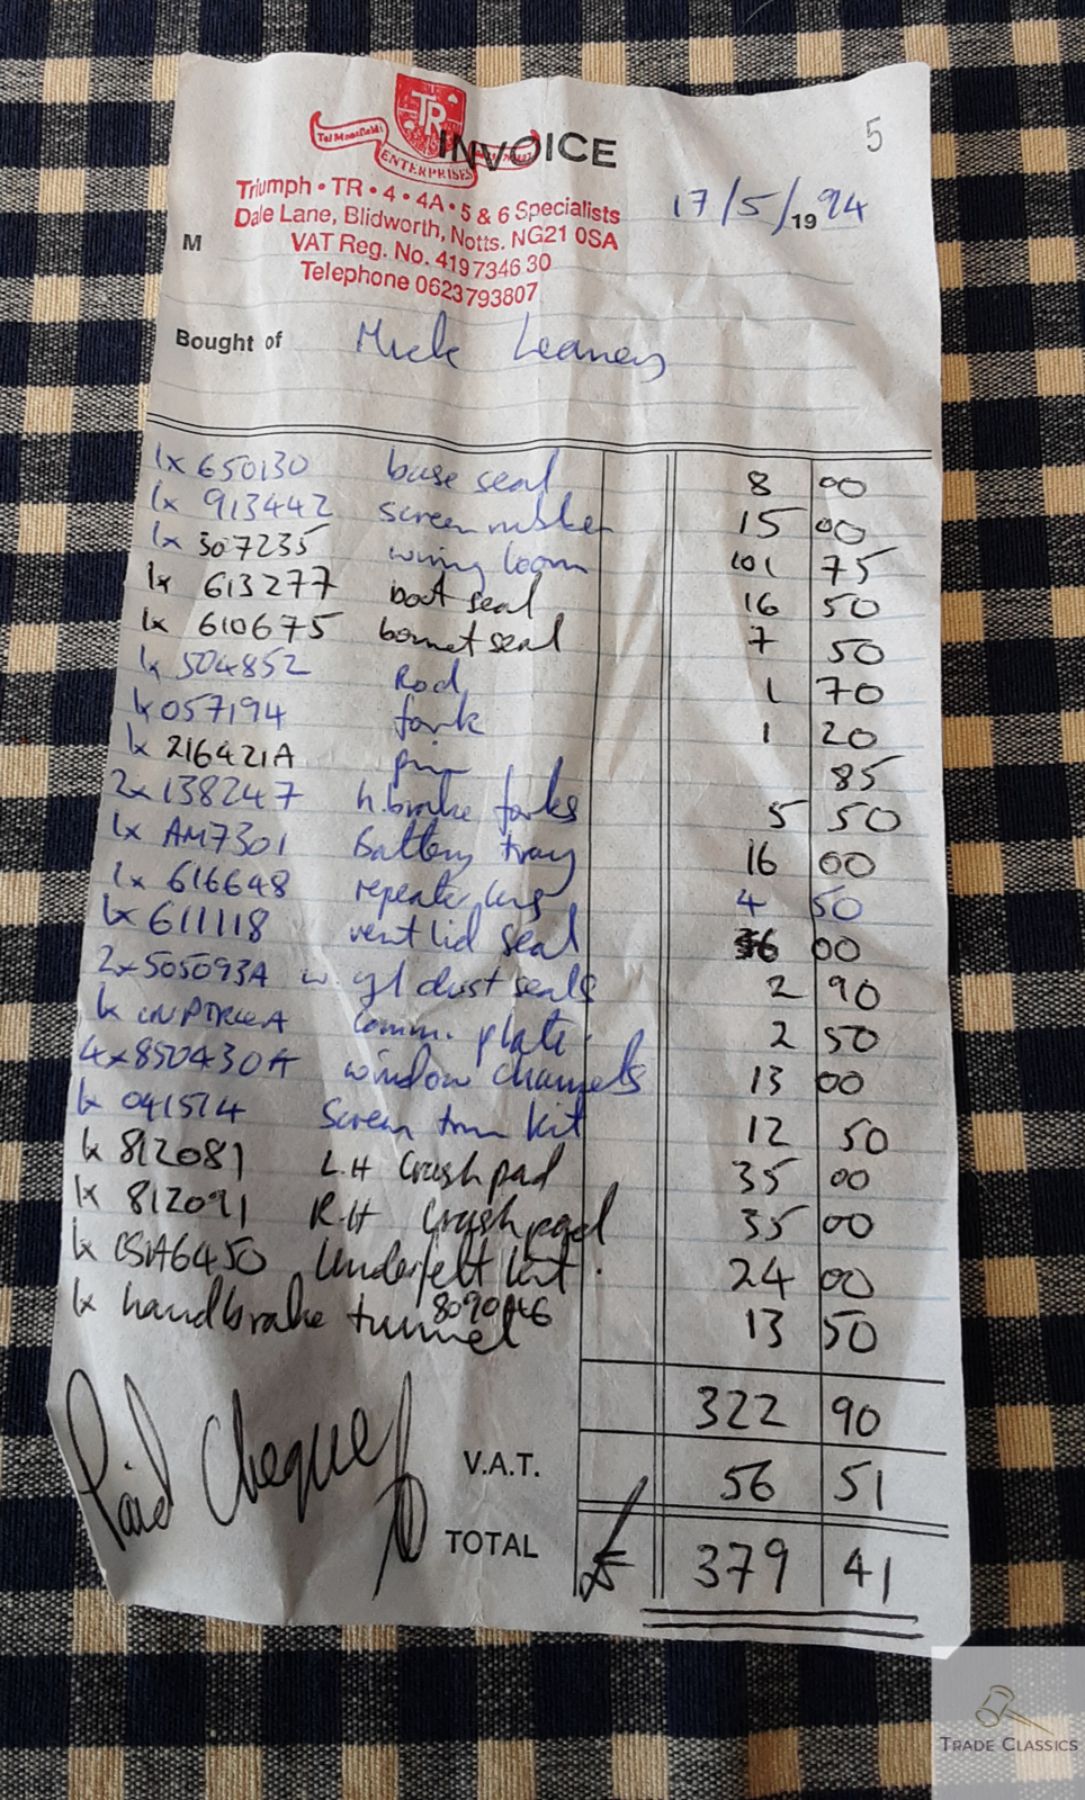 5
TR
INVOICE
ENTERPRISES
Triumph • TR • 4 • 4A • 5 & 6 Specialists
17/5/1994
Dale Lane, Blidworth, Notts. NG21 0SA
M
VAT Reg. No. 419 7346 30
Telephone 0623 793807
Bought of Mick Leaney
1x 650130 base seal 8 00
1x 913442 screen rubber 15 00
1x 307235 wiring loom 101 75
1x 613277 boot seal 16 50
1x 610675 bonnet seal 7 50
1x 504852 Rod 1 70
1x 057194 fork 1 20
1x 216421A pin 85
2x 138247 h.brake forks 5 50
1x AM7301 Battery tray 16 00
1x 616648 repeater lens 4 50
1x 611118 vent lid seal 6 00
2x 505093A w. cyl dust seals 2 90
1x comm. plate 2 50
4x 850430A window channels 13 00
1x 041514 Screen trim kit 12 50
1x 812081 L.H Crash pad 35 00
1x 812091 R.H Crash pad 35 00
1x CSA6450 Underfelt kit. 24 00
1x handbrake tunnel 13 50
322 90
Paid Cheque
V.A.T. 56 51
TOTAL £ 379 41
TRADE CLASSICS